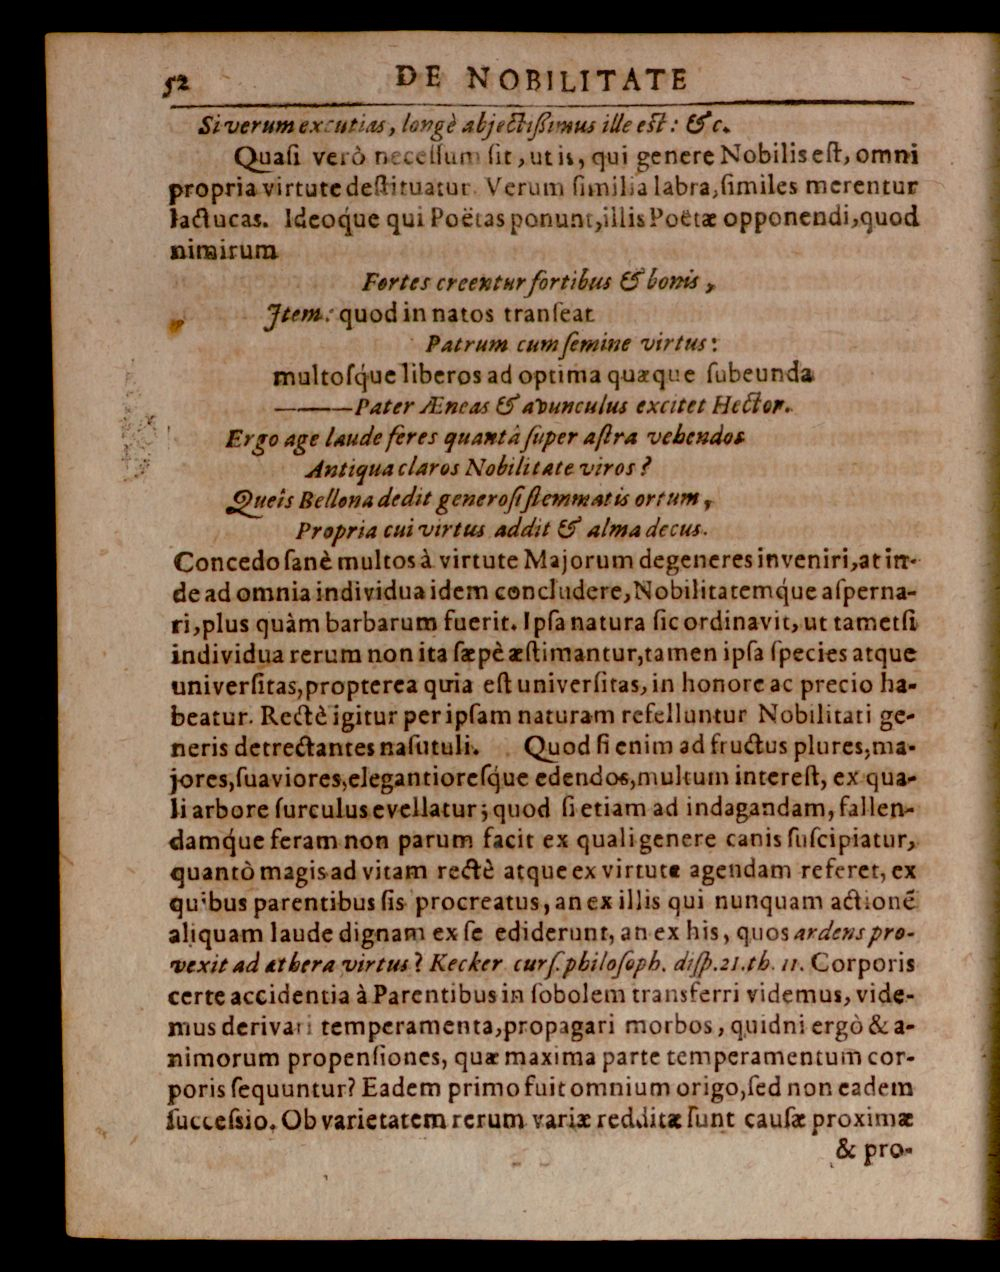 52 DE NOBILITATE
Si verum excutias, longè abjectißimus ille est: &c.
Quaſi verò neceſſum ſit, ut is, qui genere Nobilis eſt, omni
propria virtute deſtituatur. Verum ſimilia labra, ſimiles merentur
lactucas. Ideoq́ue qui Poëtas ponunt, illis Poëtæ opponendi, quod
nimirum
Fortes creentur fortibus & bonis,
Item: quod in natos tranſeat
Patrum cum ſemine virtus:
multoſq́ue liberos ad optima quæque ſubeunda
———Pater Æneas & avunculus excitet Hector.
Ergo age laude feres quantâ ſuper aſtra vehendos
Antiqua claros Nobilitate viros?
Queîs Bellona dedit generoſi ſtemmatis ortum,
Propria cui virtus addit & alma decus.
Concedo ſanè multos à virtute Majorum degeneres inveniri, at in-
de ad omnia individua idem concludere, Nobilitatemq́ue aſperna-
ri, plus quàm barbarum fuerit. Ipſa natura ſic ordinavit, ut tametſi
individua rerum non ita ſæpè æſtimantur, tamen ipſa ſpecies atque
univerſitas, propterea quia eſt univerſitas, in honore ac precio ha-
beatur. Rectè igitur per ipſam naturam refelluntur Nobilitati ge-
neris detrectantes naſutuli. Quod ſi enim ad fructus plures, ma-
jores, ſuaviores, elegantioreſq́ue edendos, multum intereſt, ex qua-
li arbore ſurculus evellatur; quod ſi etiam ad indagandam, fallen-
damq́ue feram non parum facit ex quali genere canis ſuſcipiatur,
quantò magis ad vitam rectè atque ex virtute agendam referet, ex
quibus parentibus ſis procreatus, an ex illis qui nunquam actionē
aliquam laude dignam ex ſe ediderunt, an ex his, quos ardens pro-
vexit ad æthera virtus? Kecker curſ. philoſoph. diſp. 21. th. 11. Corporis
certe accidentia à Parentibus in ſobolem transferri videmus, vide-
mus derivari temperamenta, propagari morbos, quidni ergò & a-
nimorum propenſiones, quæ maxima parte temperamentum cor-
poris ſequuntur? Eadem primo fuit omnium origo, ſed non eadem
ſucceſsio. Ob varietatem rerum variæ redditæ ſunt cauſæ proximæ
& pro-